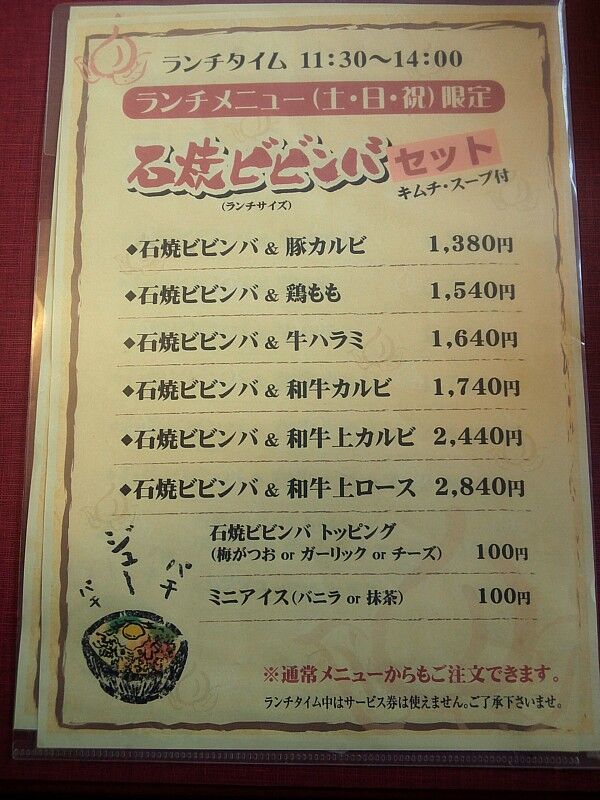 ランチタイム 11:30～14:00
ランチメニュー(土・日・祝)限定
石焼ビビンバ セット
(ランチサイズ)
キムチ・スープ付
◆石焼ビビンバ & 豚カルビ 1,380円
◆石焼ビビンバ & 鶏もも 1,540円
◆石焼ビビンバ & 牛ハラミ 1,640円
◆石焼ビビンバ & 和牛カルビ 1,740円
◆石焼ビビンバ & 和牛上カルビ 2,440円
◆石焼ビビンバ & 和牛上ロース 2,840円
石焼ビビンバ トッピング
(梅がつお or ガーリック or チーズ) 100円
ミニアイス(バニラ or 抹茶) 100円
ジュー
パチ
パチ
※通常メニューからもご注文できます。
ランチタイム中はサービス券は使えません。ご了承下さいませ。